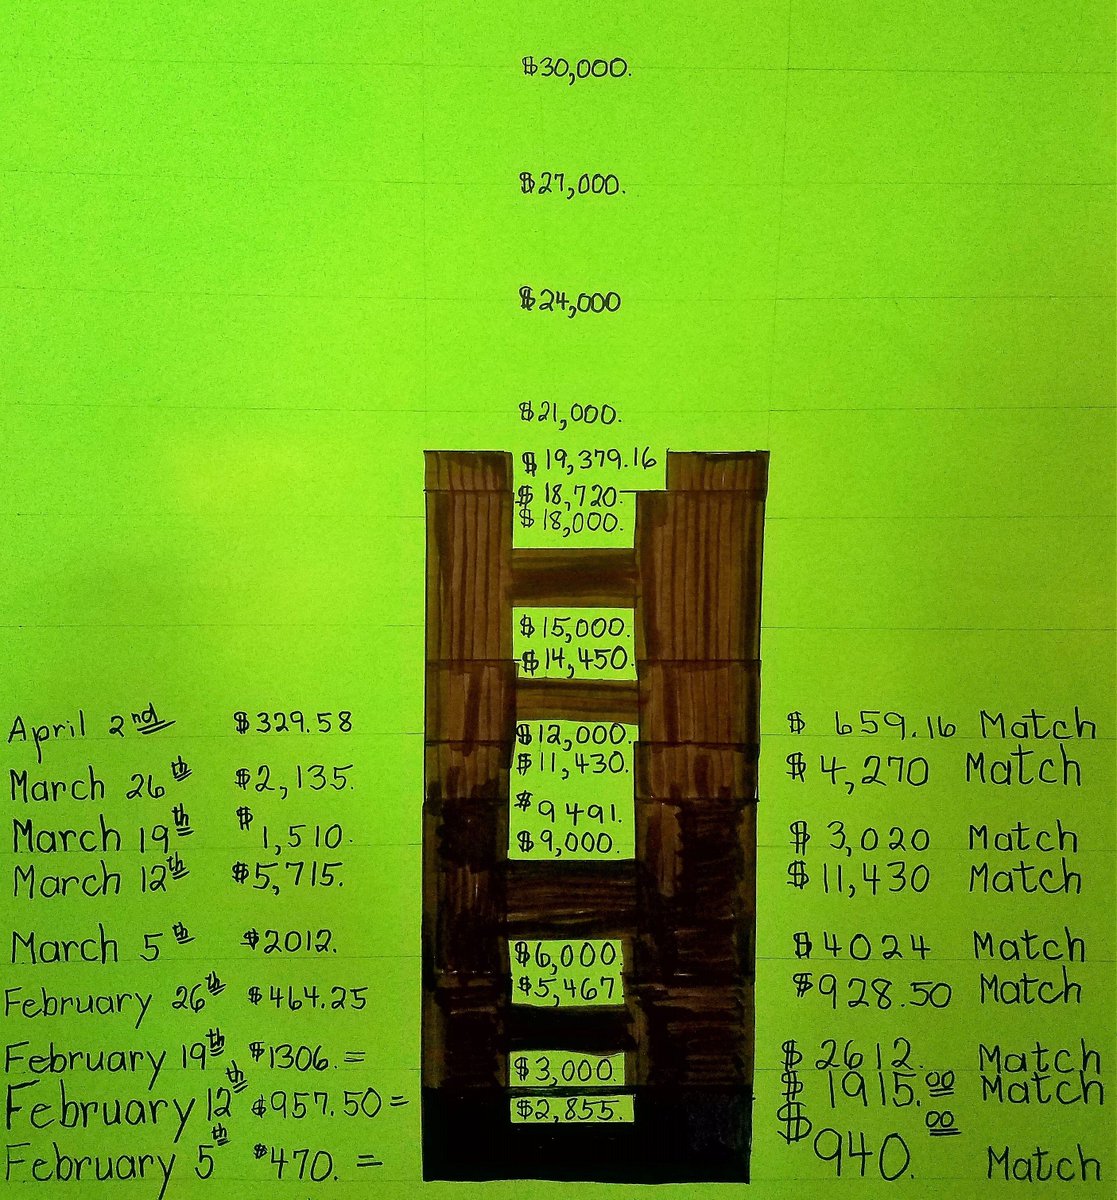 $30,000.
$27,000.
$24,000
$21,000.
$19,379.16
$18,720.
$18,000.
$15,000.
$14,450.
April 2nd $329.58 $12,000. $659.16 Match
March 26th $2,135. $11,430. $4,270 Match
$9491.
March 19th $1,510. $9,000. $3,020 Match
March 12th $5,715. $11,430 Match
March 5th $2012. $6,000. $4024 Match
February 26th $464.25 $5,467 $928.50 Match
February 19th $1306. = $3,000. $2612. Match
February 12th $957.50 = $2,855. $1915.00 Match
February 5th $470. = $940.00 Match